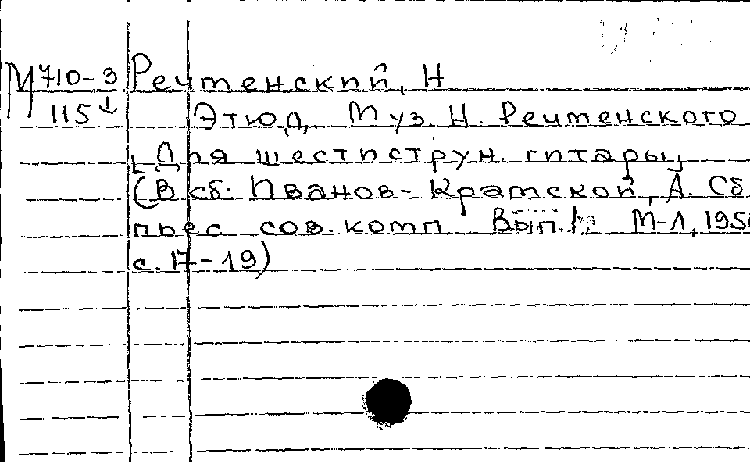 М 710-3 Речменский, Н
115 Этюд, Муз. Н. Речменского
[Для шестиструн. гитары]
(В сб: Иванов-Крамской, А. Сб.
пьес сов. комп Вып. М-Л, 195
с. 17-19)